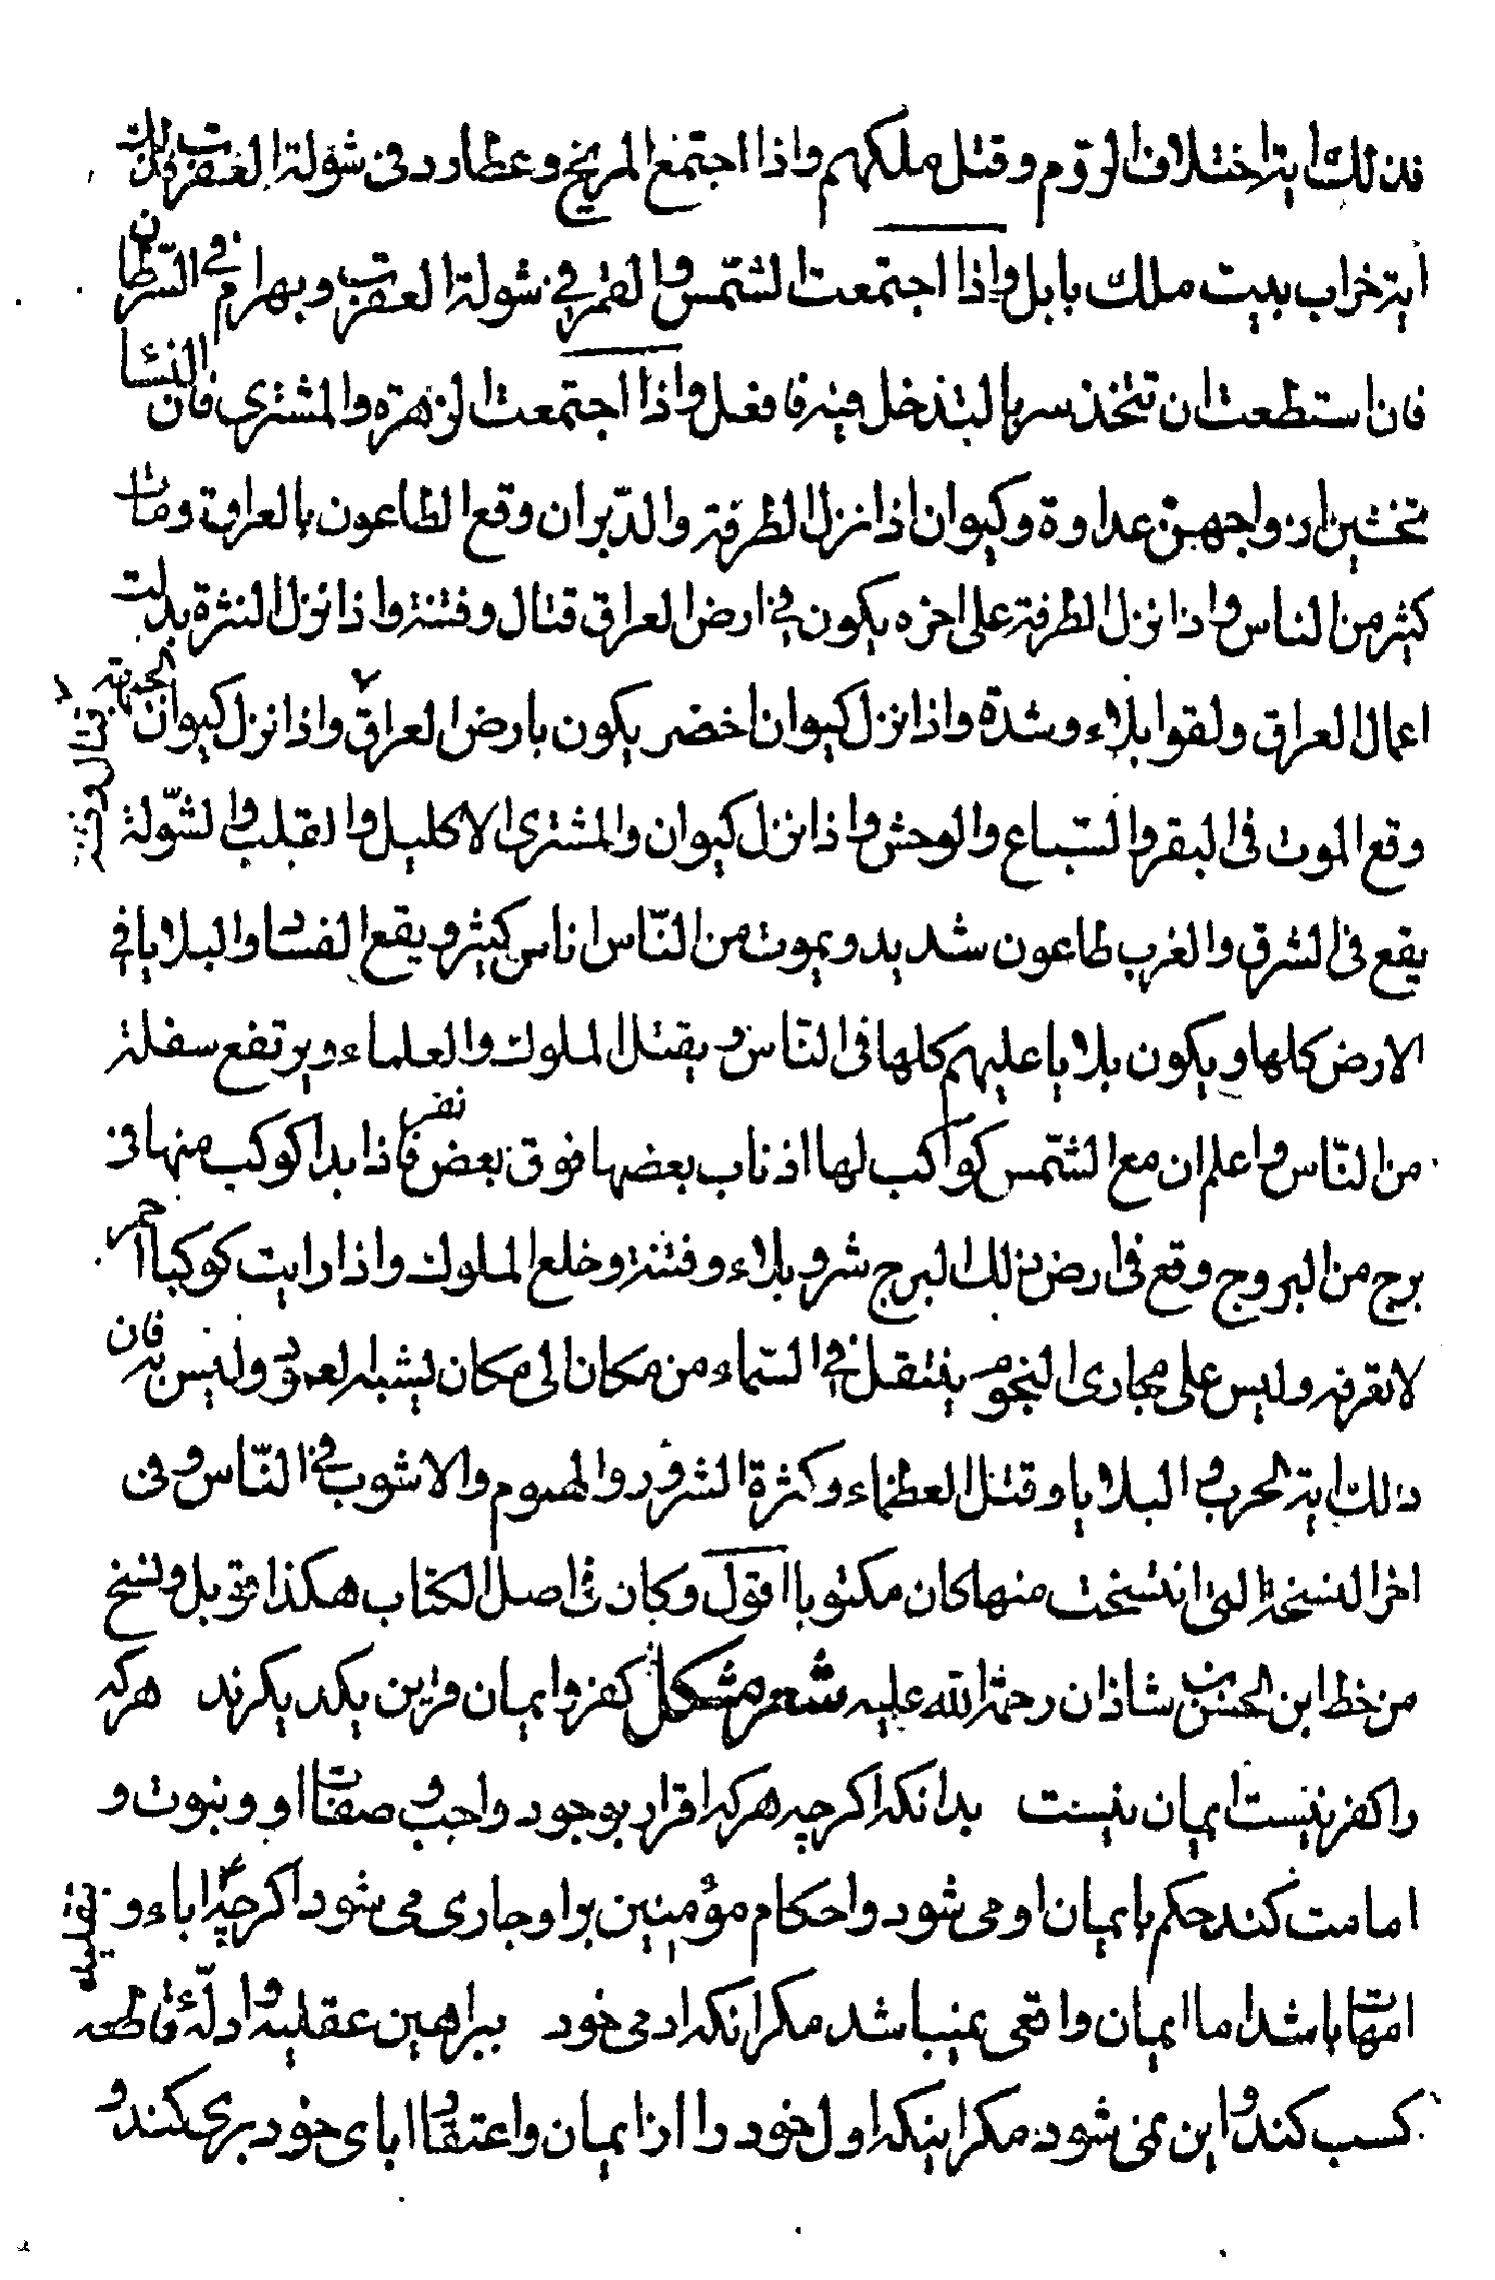 فذلك اية اختلاف الروم وقتل ملكهم واذا اجتمع المريخ وعطارد فى شولة العقرب فذلك
اية خراب بيت ملك بابل واذا اجتمعت الشمس والقمر فى شولة العقرب وبهرام فى السرطان
فان استطعت ان تتخذ سربا لتدخل فيه فافعل واذا اجتمعت الزهرة والمشترى فان النسا
تخشين ازواجهن عداوة وكيوان اذا نزل الطرفة والدّبران وقع الطاعون بالعراق ومات
كثير من الناس واذا نزل الطرفة على اخره يكون فى ارض العراق قتال وفتنة واذا نزل النثرة بدلت
اعمال العراق ولقوا بلاء وشدة واذا نزل كيوان اخضر يكون بارض العراق قتال وفتنة واذا نزل كيوان الجبهة
وقع الموت فى البقر والسباع والوحش واذا نزل كيوان والمشترى الاكليل والقلب والشّولة
يقع فى الشرق والغرب طاعون شديد ويموت من النّاس اناس كثير ويقع الفساد والبلايا فى
الارض كلها ويكون بلايا عليهم كلها فى النّاس ويقتل الملوك والعلماء ويرتفع سفلة
من النّاس واعلم ان مع الشّمس كواكب لها اذناب بعضها فوق بعض فاذا بدا كوكب منها فى
برج من البروج وقع فى ارض ذلك البرج شر وبلاء وفتنة وخلع الملوك واذا رايت كوكبا احمر
لا تعرفه وليس على مجارى النجوم ينتقل فى السّماء من مكان الى مكان يشبه العمود وليس به فان
ذلك اية الحرب والبلايا وقتل العظماء وكثرة الشرور والهموم والاشوب فى النّاس وفى
اخر النسخة التى انتسخت منها كان مكتوبا اقول وكان فى اصل الكتاب هكذا قوبل ونسخ
من خط ابن الحسن بن شاذان رحمة الله عليه شعر مشكل كفر و ايمان قرين يكديكرند هركه
را كفر نيست ايمان نيست بدانكه اكرچه هركه اقرار بوجود واجب و صفات او و نبوت و
امامت كند حكم بايمان او مى شود و احكام مؤمنين بر او جارى مى شود اكرچه بتقليد اباء و
امهات باشد اما ايمان واقعى نميباشد مكر انكه ادمى خود ببراهين عقليه و ادلّهٔ قاطعه
كسب كند و اين نمى شود مكر اينكه اول خود را از ايمان و اعتقاد اباى خود برى كند و